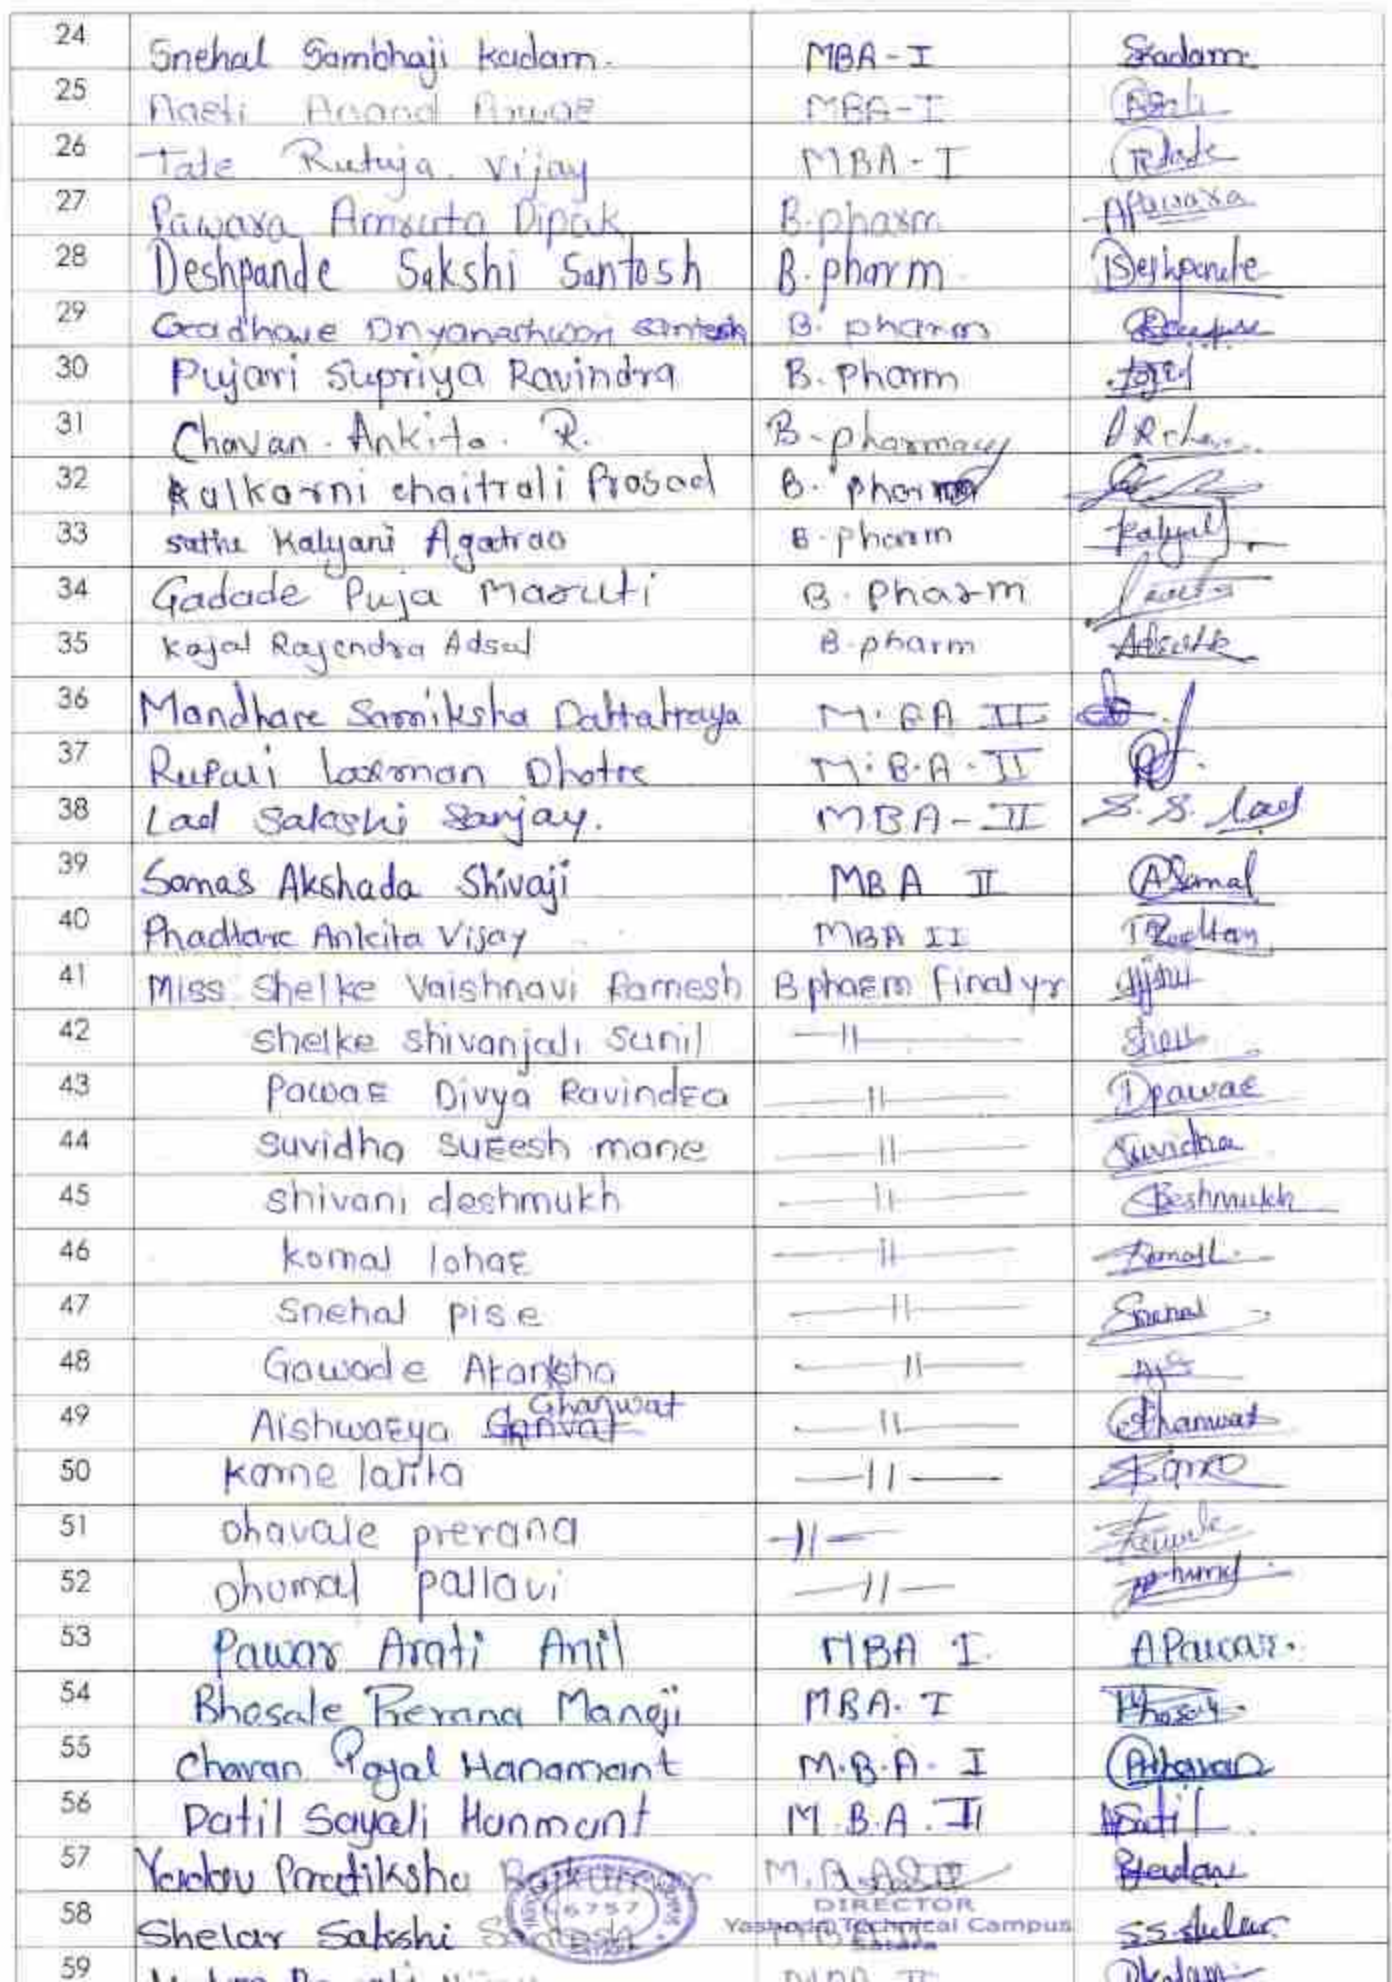 24 Snehal Sambhaji Kadam. MBA-I Skadam
25 Anand MBA-I
26 Tate Rutuja Vijay MBA-I
27 Pawara Amruta Dipak B.pharm APawara
28 Deshpande Sakshi Santosh B.pharm Deshpande
29 Gadhave Dnyaneshwari Santosh B.pharm
30 Pujari Supriya Ravindra B.Pharm
31 Chavan Ankita R. B-pharmacy
32 Kulkarni Chaitrali Prasad B.pharm
33 Sathe Kalyani Agatrao B.pharm Kalyani
34 Gadade Puja Maruti B.Pharm
35 Kajal Rajendra Adsul B.pharm
36 Mandhare Samiksha Dattatraya M.BA II
37 Rupali Laxman Dhotre M.B.A-II
38 Lad Salashi Sanjay. MBA-II S.S. Lad
39 Somas Akshada Shivaji MBA II
40 Phadtare Ankita Vijay MBA II
41 Miss Shelke Vaishnavi Ramesh B pharm Final yr
42 Shelke Shivanjali Sunil —||—
43 Pawar Divya Ravindra —||— Dpawar
44 Suvidha Suresh mane —||— Suvidha
45 shivani deshmukh —||— Deshmukh
46 komal lohar —||— Komal
47 Snehal pise —||— Snehal
48 Gawade Akanksha —||—
49 Aishwarya Ghanwat —||— Ghanwat
50 kame lalita —||—
51 Dhavale prerana —||—
52 Dhumal pallavi —||—
53 Pawar Arati Anil MBA I APawar.
54 Bhosale Prerana Manaji MBA. I
55 Chavan Payal Hanamant M.B.A. I PChavan
56 Patil Sayali Hanmant M.B.A. II
57 Yadav Pratiksha Rajkumar
58 Shelar Sakshi Santosh S.S.Shelar
DIRECTOR
Yashoda Technical Campus
Satara
59